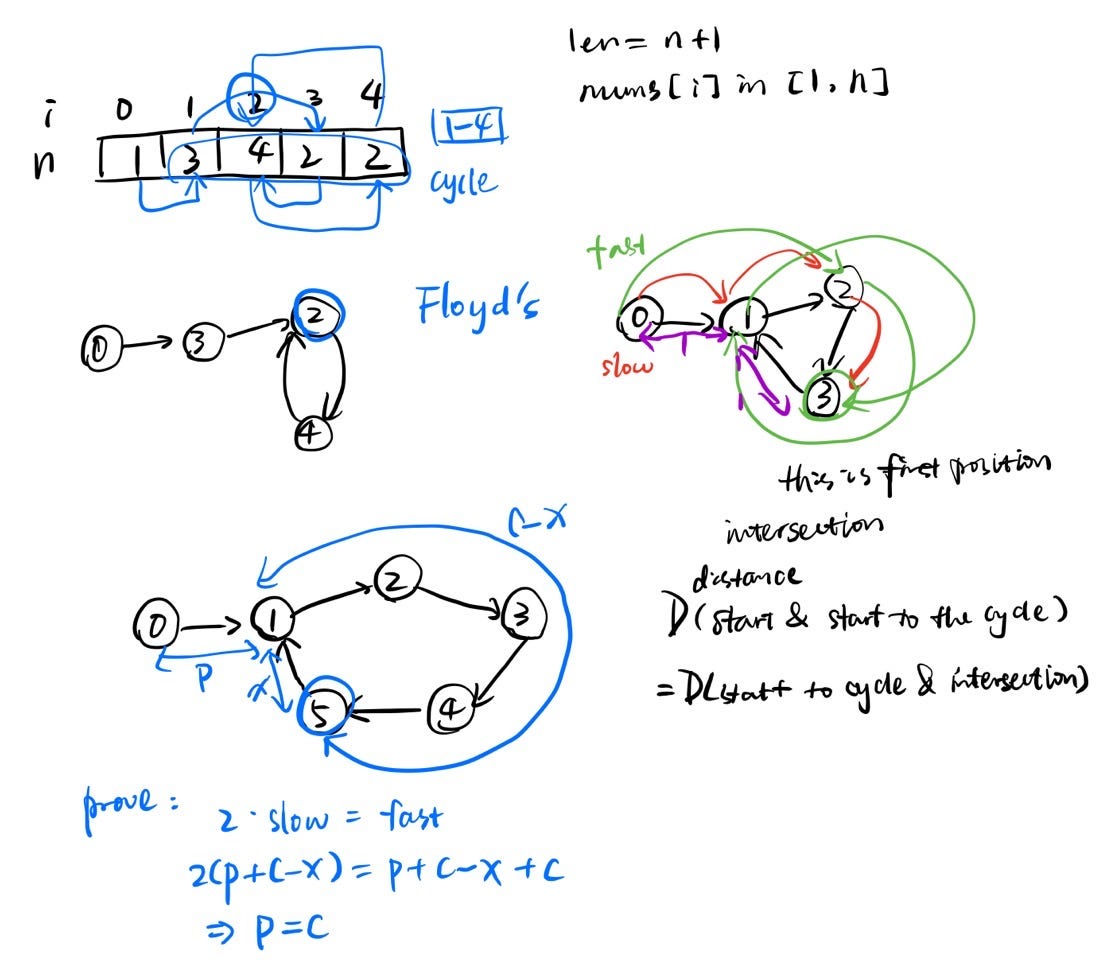 len = n+1
nums[i] in [1, n]
i 0 1 2 3 4
n 1 3 4 2 2
1-4
cycle
Floyd's
0 3 2
4
fast
0 1 2
1
slow
1
3
this is first position
intersection
distance
D(start & start to the cycle)
= D(start to cycle & intersection)
C-x
0 1 2 3
P
x
5 4
prove:
2 · slow = fast
2(p+c-x) = p+c-x+c
⇒ p=c